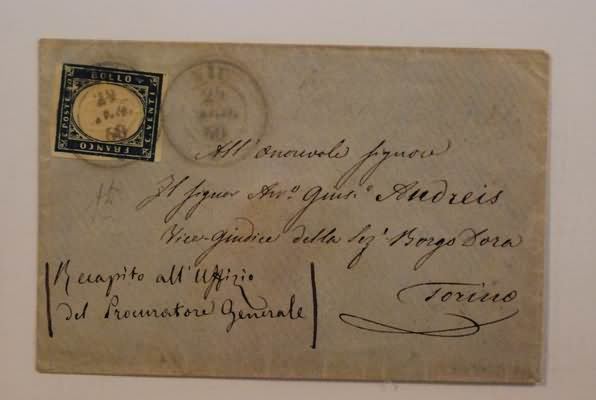 FRANCO BOLLO
C. POSTE 20
C. VENTI
29
60
VIU
29
60
All'Onorevole Signore
Il Signor Avv.º Gius.e Andreis
Vice-Giudice della Sez.e Borgo Dora
Torino
Recapito all'Uffizio
del Procuratore Generale